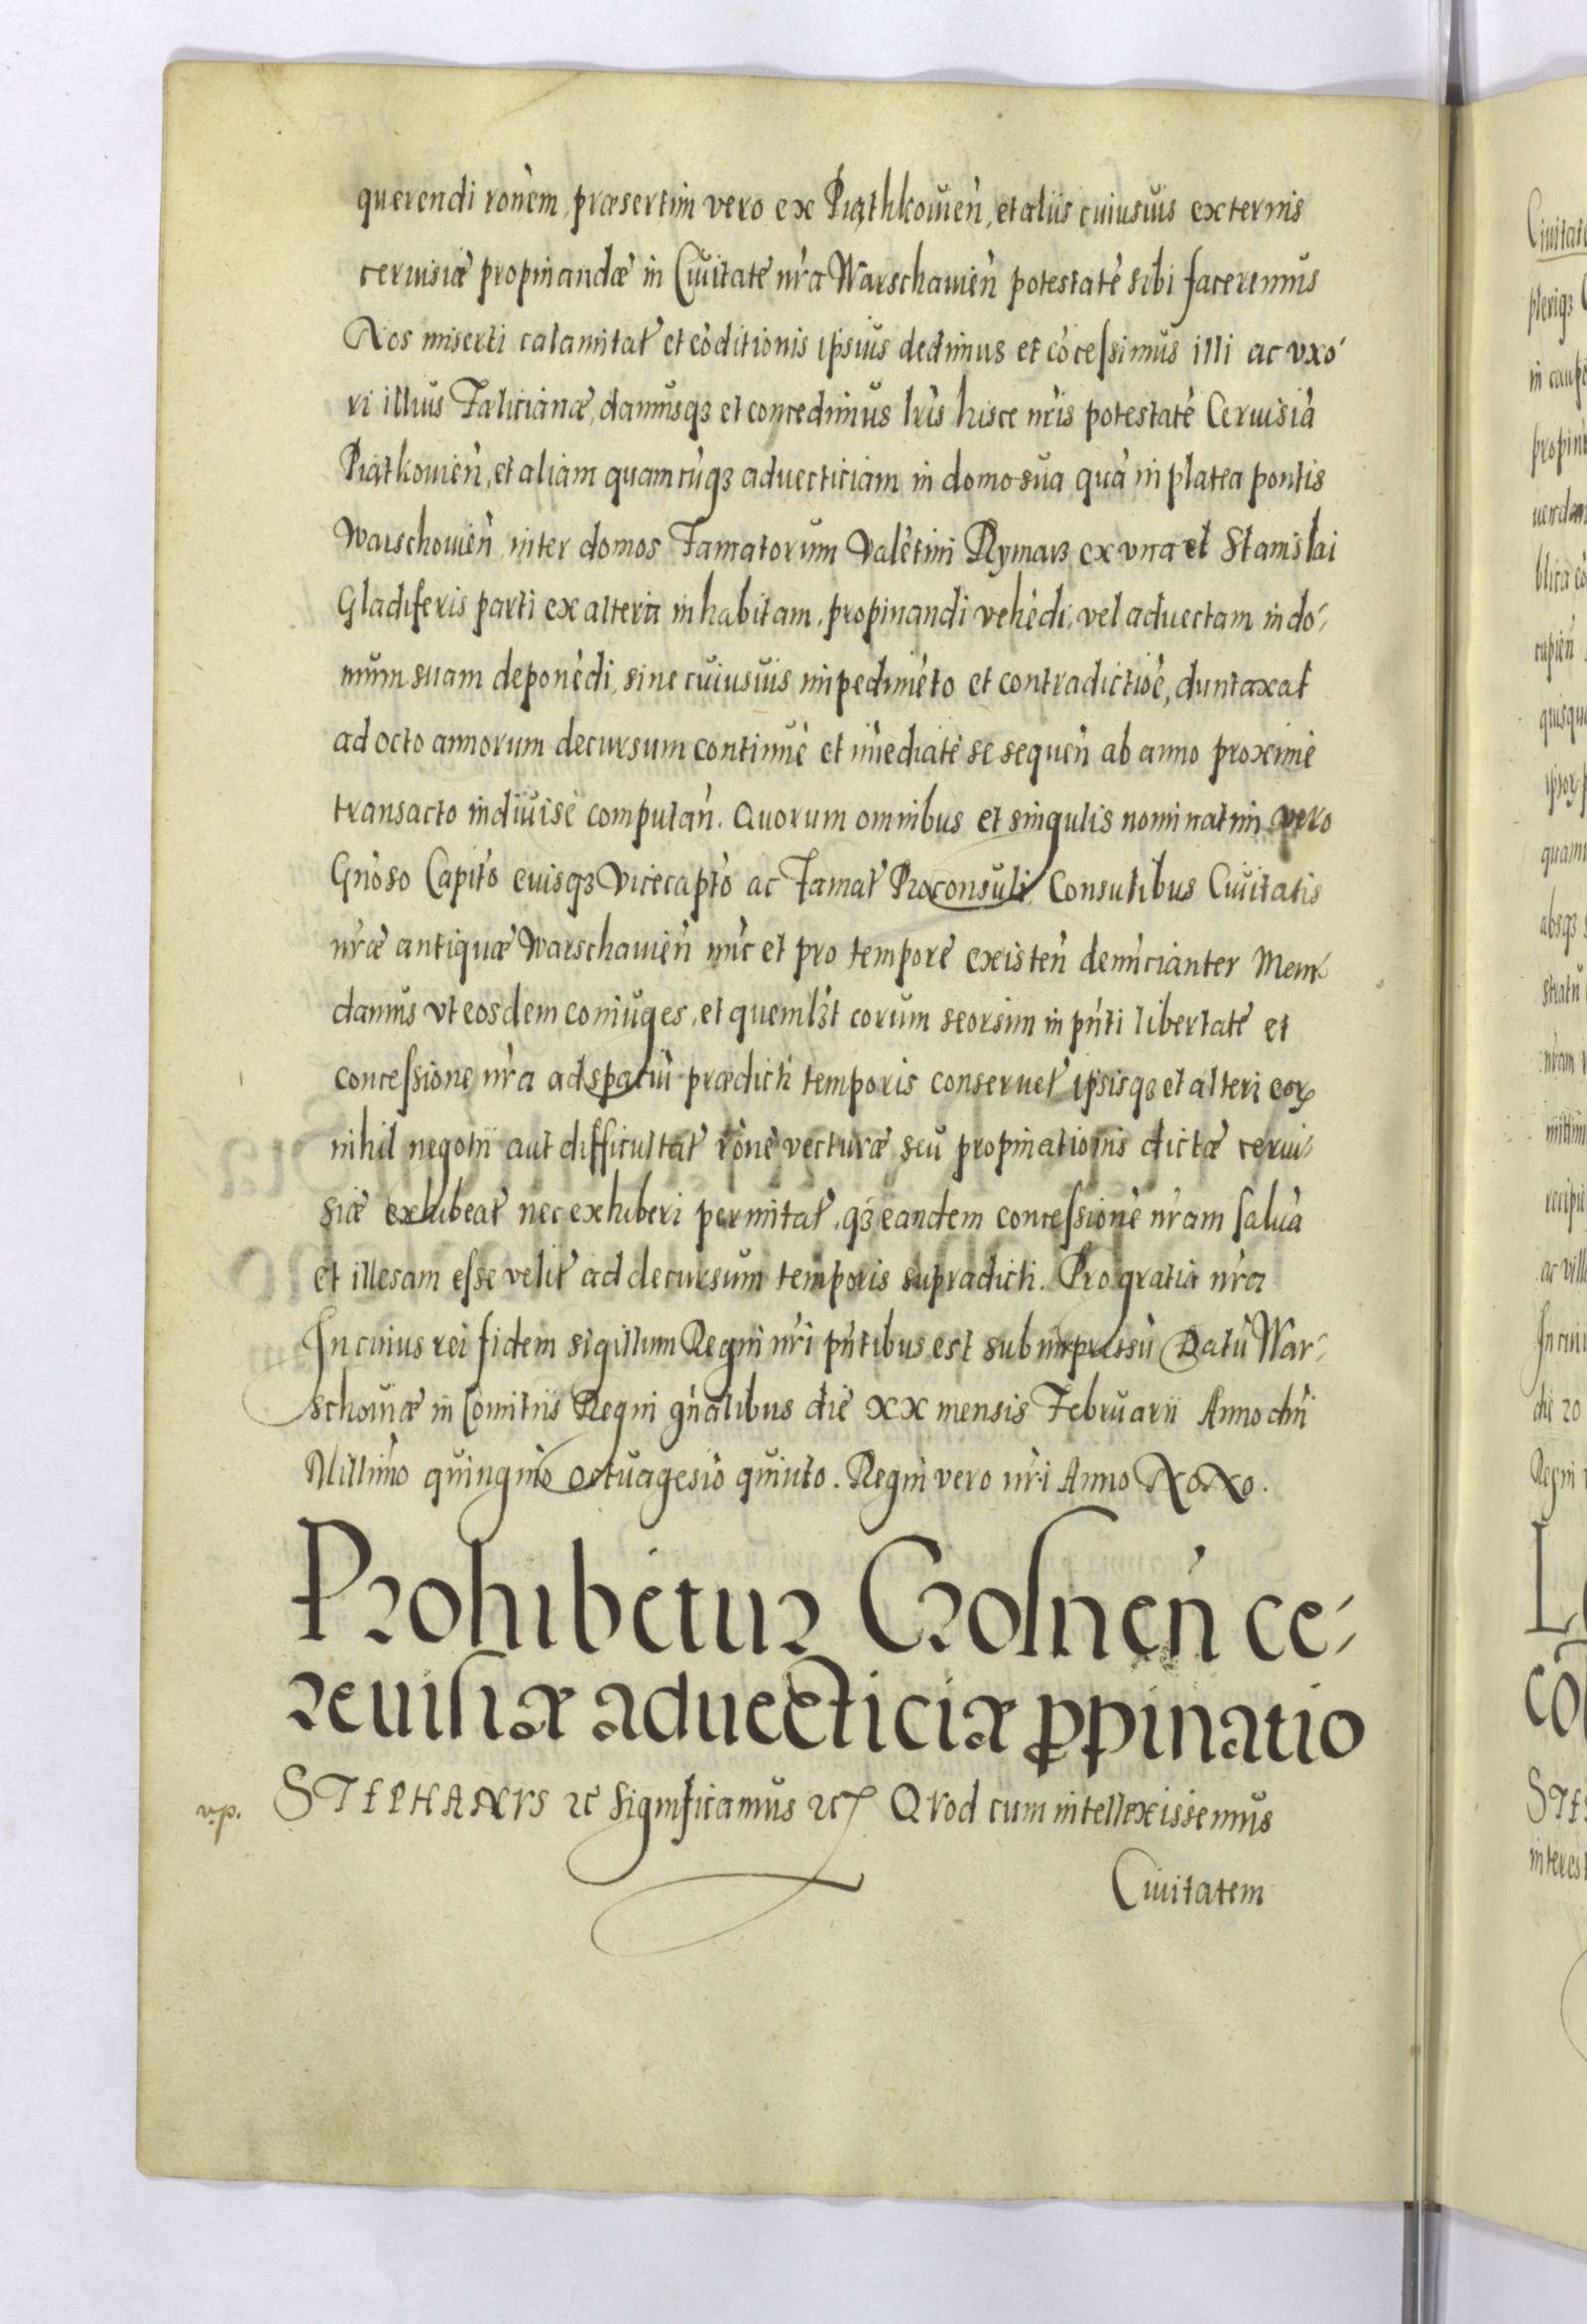 querendi ronem, præsertim vero ex Piąthkowień, et aliis cuiusvis externis
cervisiæ propinandæ in Civitate nr̃a Warschavień potestatẽ sibi faceremus
Nos miserti calamitat̃ et cõditionis ipsius dedimus et cõcessimus illi ac vxo-
ri illius Falicianæ, damusqȝ et concedimus lr̃is hisce nr̃is potestatẽ Cervisiã
Piątkowień, et aliam quamcũqȝ advecticiam in domo sua quã in platea pontis
Warschovień inter domos Famatorum Valẽtini Rymarz ex vna et Stanislai
Gladiferis parti ex altera inhabitam, propinandi vehẽdi, vel advectam in do-
mum suam deponẽdi, sine cuiusvis impedimẽto et contradictiõe, duntaxat
ad octo annorum decursum continuè et im̃ediatè se sequeñ ab anno proximè
transacto indivisè computañ. Quorum omnibus et singulis nominatim vero
Gñoso Capit̃o eiusqȝ Vicecapt̃o ac Famat̃ Proconsuli Consulibus Civitatis
nr̃æ antiquæ Warschavień nũc et pro tempore existeñ denũcianter Man-
damus vt eosdem coniuges, et quemlȝt eorum seorsim in pñti libertate et
concessione nr̃a ad spatiũ prædicti temporis conservet̃ ipsisqȝ et alteri eorꝝ
nihil negotii aut difficultat̃ rõne vecturæ seu propinationis dictæ cervi-
siæ exhibeat̃ nec exhiberi permitat̃, qȝ eandem concessionẽ nr̃am salvã
et illesam esse velit̃ ad decursum temporis supradicti. Pro gratia nr̃a
In cuius rei fidem sigillum Regni nr̃i pñtibus est subimpressũ Datũ War-
schoviæ in Comitiis Regni gñalibus die XX mensis Februarii Anno dñi
Millimo quingm̃o octuagesĩo quinto. Regni vero nr̃i Anno Nono.
Prohibetur Crosneñ ce-
revisiæ advecticiæ ꝓpinatio
STEPHANVS ⁊c̃ Significamus ⁊c̃ Qvod cum intellexissemus
Civitatem
v.p.